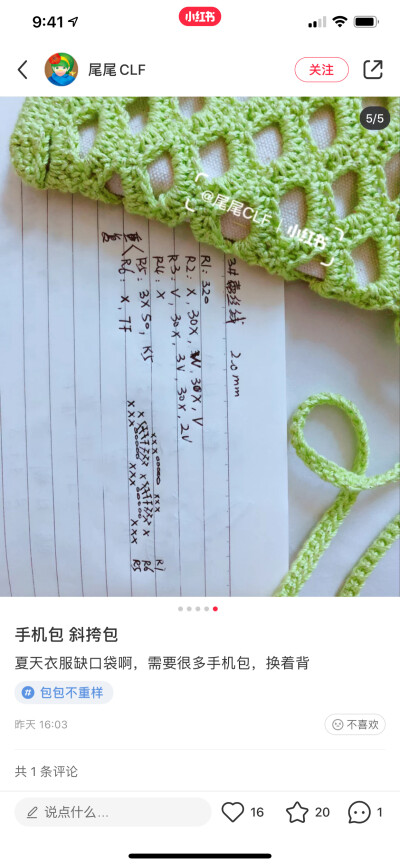 9:41
小红书
尾尾 CLF
关注
5/5
@尾尾CLF
小红书
3片蕾丝线 2.0mm
R1: 320
R2: X, 30X, W, 30X, V
R3: V, 30X, 3V, 30X, 2V
R4: X
R5: 3X 50, K5
R6: X, 7F
重复
R1
R6
R5
手机包 斜挎包
夏天衣服缺口袋啊，需要很多手机包，换着背
# 包包不重样
昨天 16:03
不喜欢
共 1 条评论
说点什么...
16
20
1